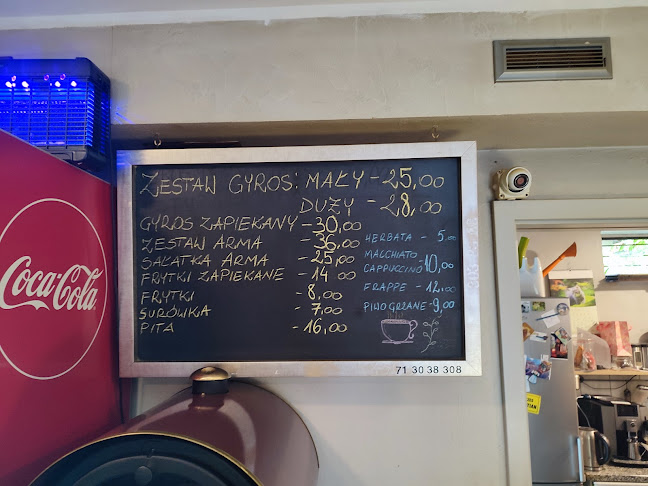 ZESTAW GYROS: MAŁY - 25,00
DUŻY - 28,00
GYROS ZAPIEKANY - 30,00
ZESTAW ARMA - 36,00
SAŁATKA ARMA - 25,00
FRYTKI ZAPIEKANE - 14 00
FRYTKI - 8,00
SURÓWKA - 7,00
PITA - 16,00
HERBATA - 5,00
MACCHIATO
CAPPUCCINO - 10,00
FRAPPE - 12,00
PIWO GRZANE - 9,00
71 30 38 308
Coca-Cola